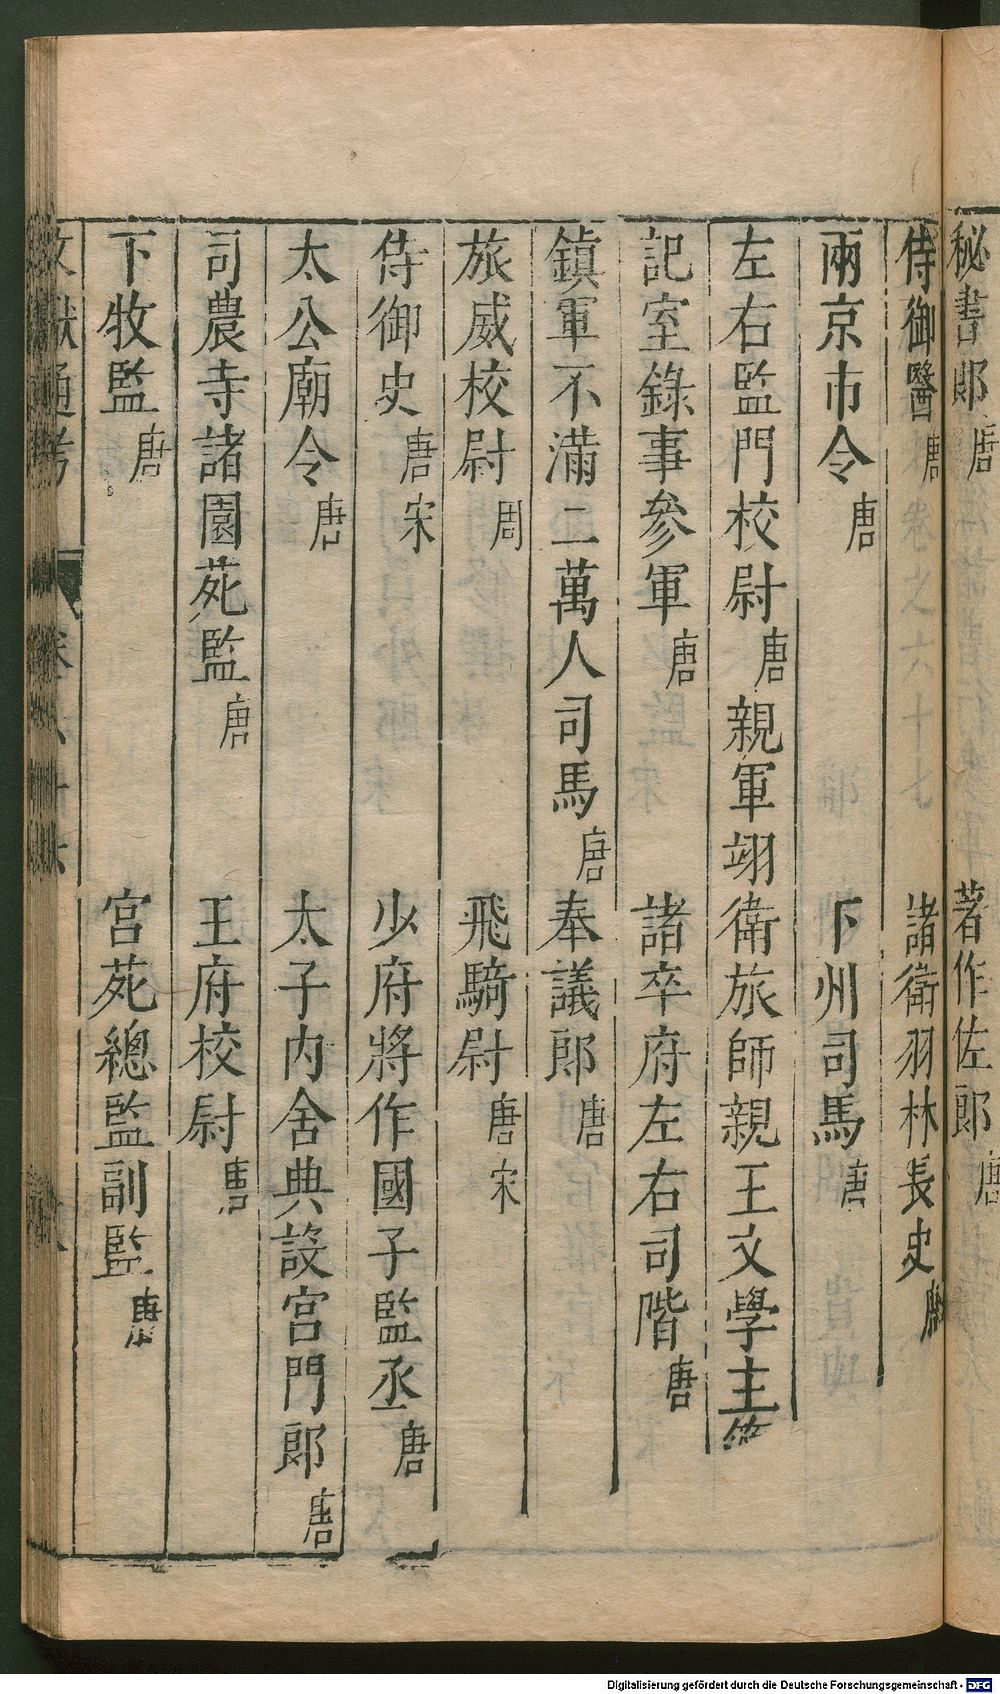 秘書郎唐 著作佐郎唐
侍御醫唐 諸衛羽林長史唐
兩京市令唐 下州司馬唐
左右監門校尉唐親軍翊衛旅師親王文學主
記室錄事參軍唐 諸卒府左右司階唐
鎮軍不滿二萬人司馬唐 奉議郎唐
旅威校尉周 飛騎尉唐宋
侍御史唐宋 少府將作國子監丞唐
太公廟令唐 太子內舍典設宮門郎唐
司農寺諸園苑監唐 王府校尉唐
下牧監唐 宮苑總監副監唐
文獻通考 卷六十六
Digitalisierung gefördert durch die Deutsche Forschungsgemeinschaft - DFG